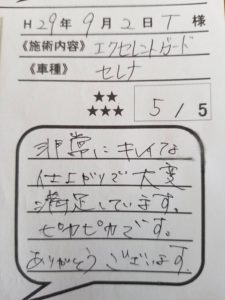 H29年9月2日 T 様
《施術内容》エクセレントガード
《車種》セレナ
★★
★★★
5 / 5
非常にキレイな
仕上がりで大変
満足しています。
ピカピカです。
ありがとうございます。